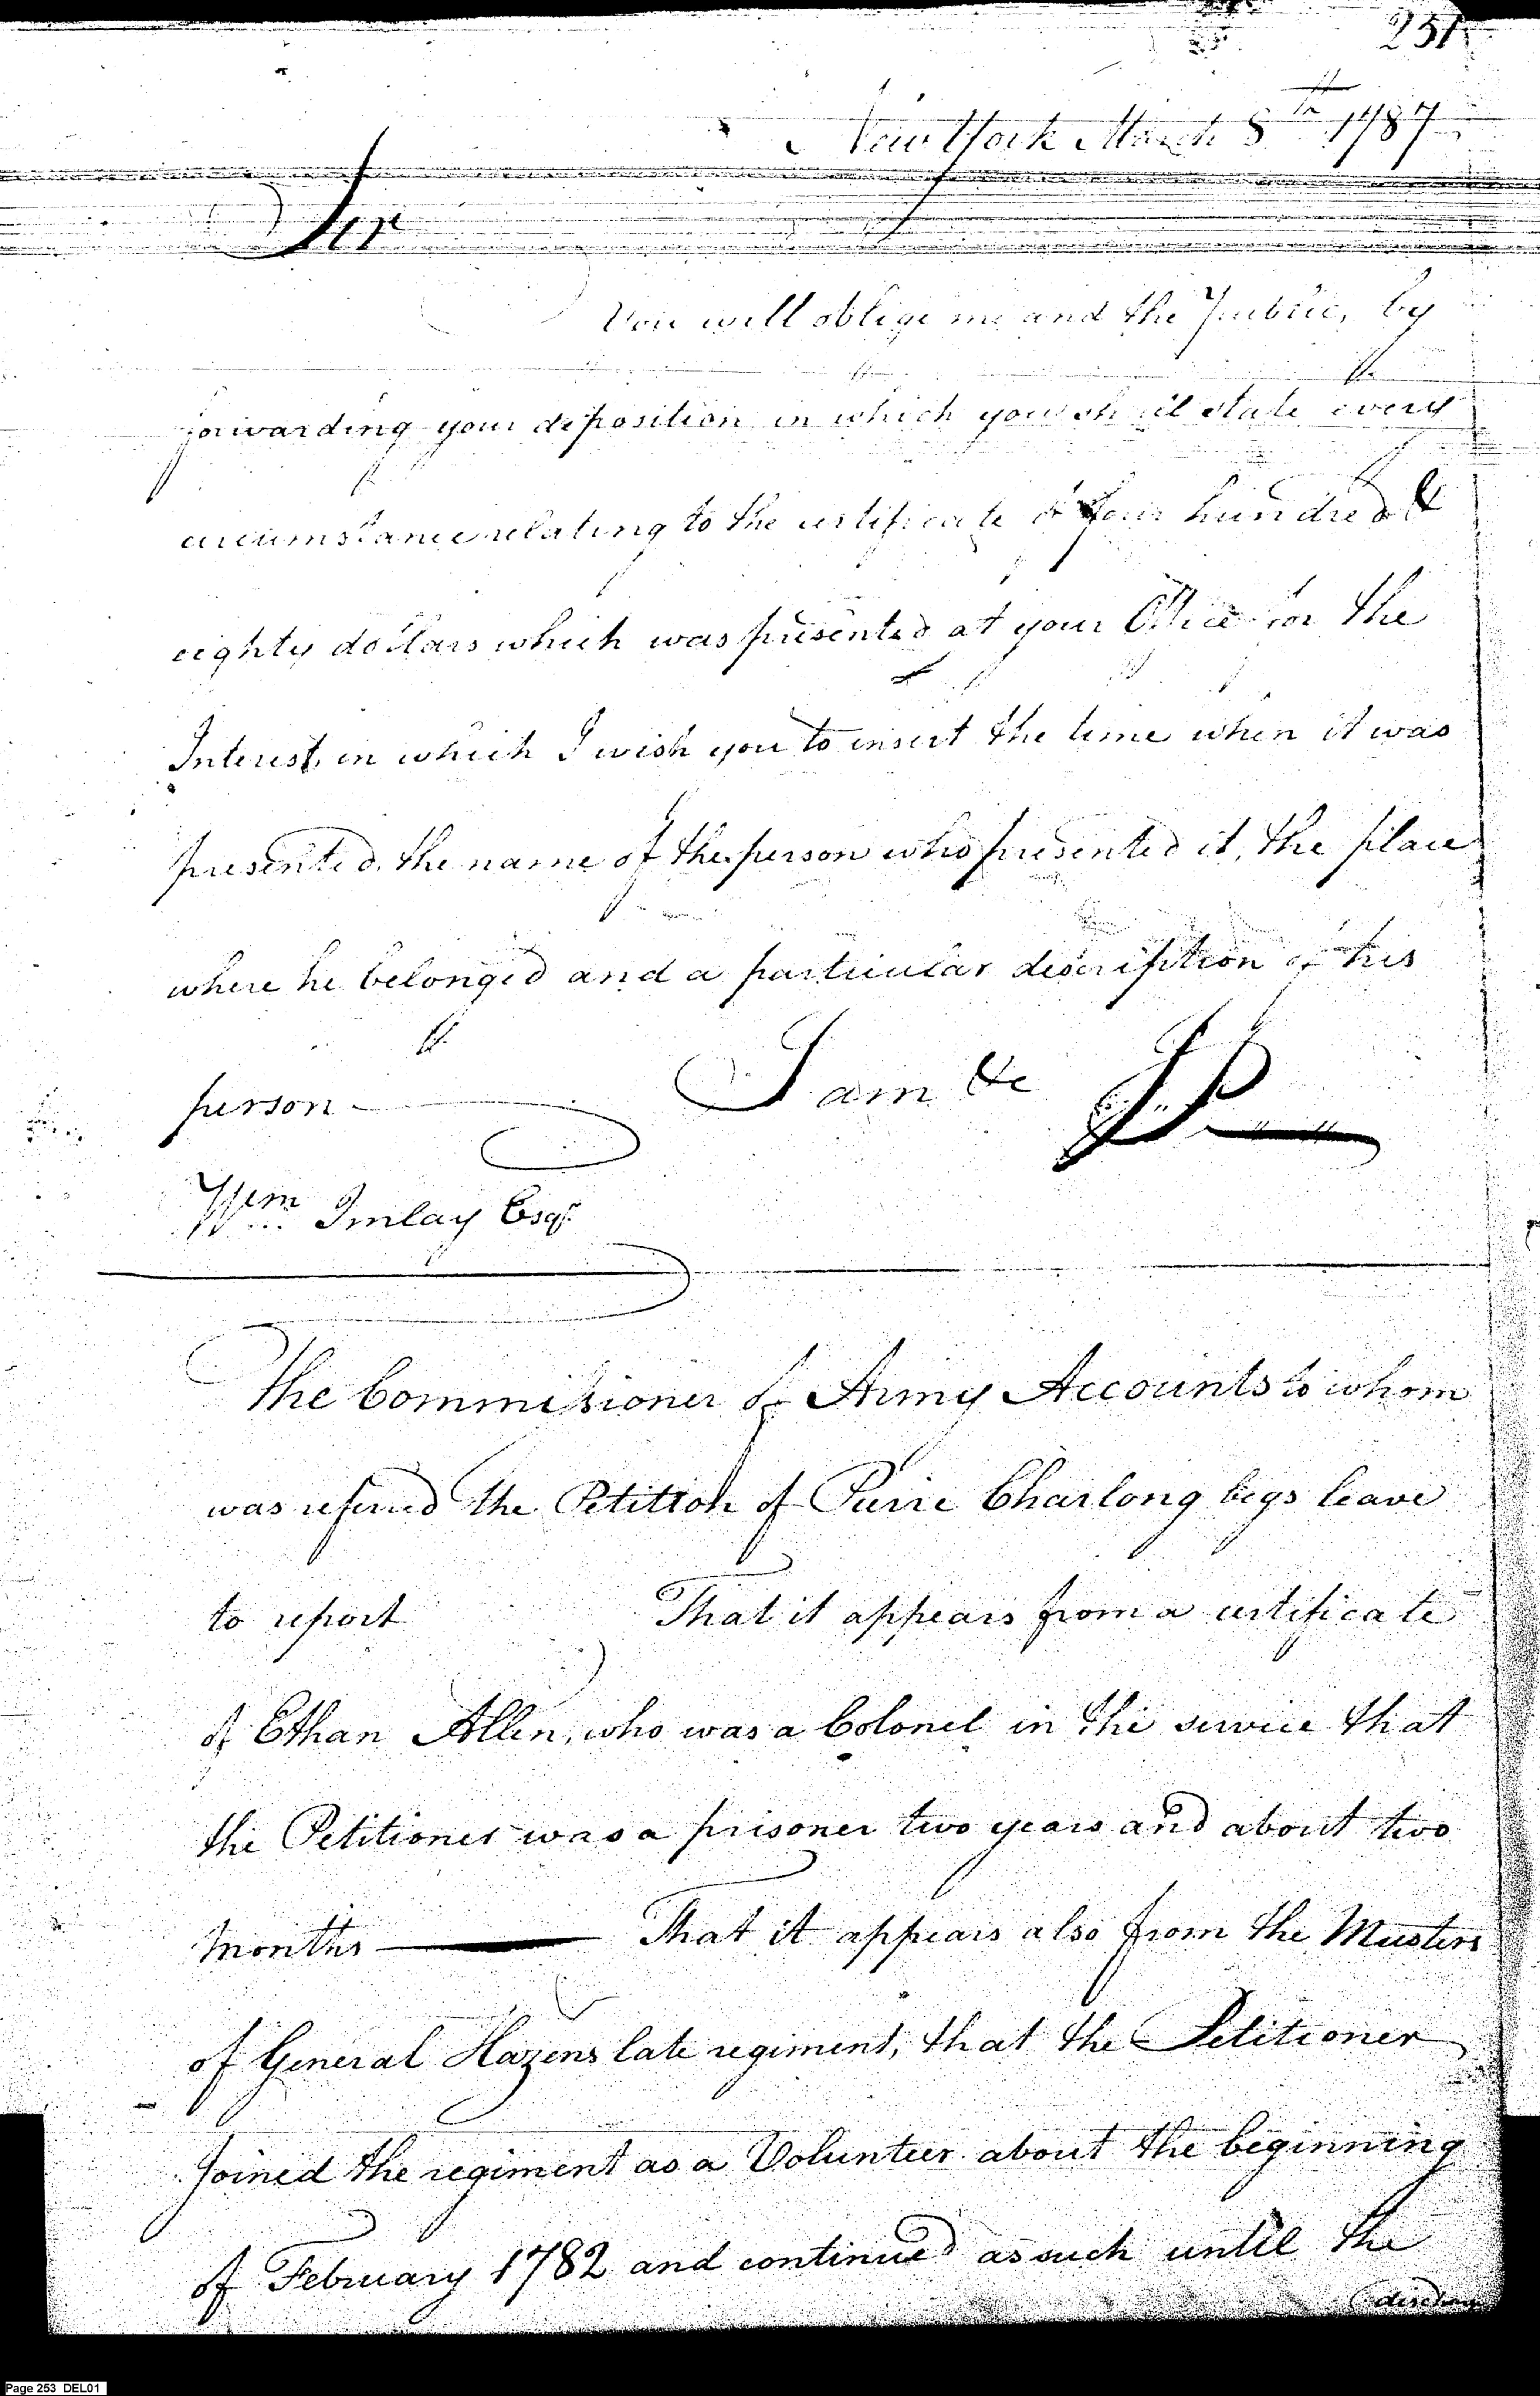 251
New York March 8th 1787
Sir
You will oblige me and the Public, by
forwarding your deposition in which you shall state every
circumstance relating to the certificate of four hundred &
eighty dollars which was presented at your Office for the
Interest, in which I wish you to insert the time when it was
presented, the name of the person who presented it, the place
where he belonged and a particular description of his
person
I am &c
JP
Wm Imlay Esqr
The Commissioner of Army Accounts to whom
was referred the Petition of Pierre Charlong begs leave
to report That it appears from a certificate
of Ethan Allen, who was a Colonel in the service that
the Petitioner was a prisoner two years and about two
months — That it appears also from the Musters
of General Hazens late regiment, that the Petitioner
Joined the regiment as a Volunteer about the beginning
of February 1782 and continued as such until the
Page 253 DEL01